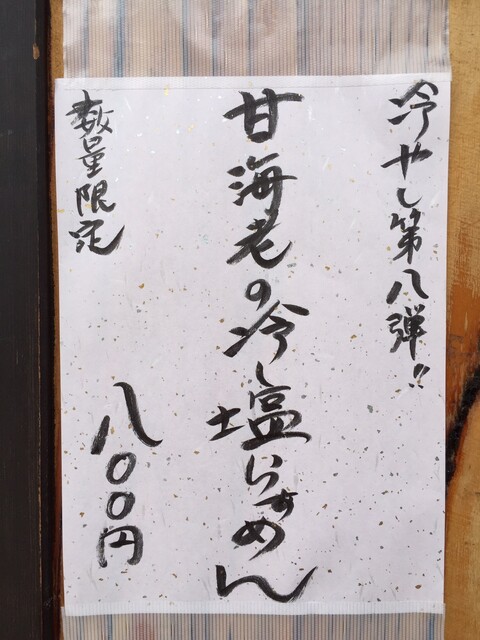 冷やし第八弾!!
甘海老の冷し塩らぁめん
数量限定
八〇〇円